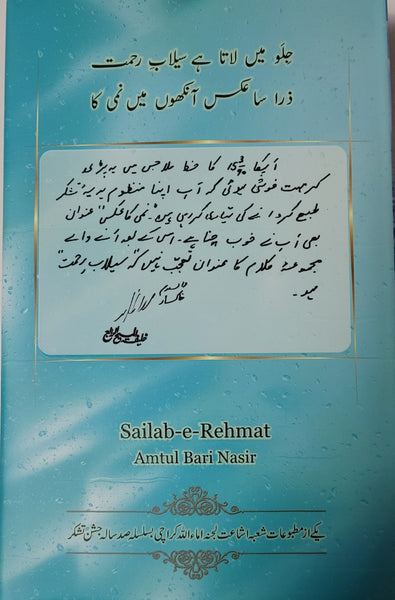 جلَو میں لاتا ہے سیلابِ رحمت
ذرا سا عکس آنکھوں میں نمی کا
آپکا خط ملا جس میں یہ پڑھ
کر بہت خوشی ہوئی کہ آپ اپنا منظوم ہدیہء تشکر
طبع کروانے کی تیاری کر رہی ہیں۔ "نمی کا عکس" عنوان
بھی آپ نے خوب چنا ہے۔ اس کے بعد آنے والے
مجموعۂ کلام کا عنوان تعجب نہیں کہ "سیلابِ رحمت"
ہو۔
والسلام
خاکسار
خلیفۃ المسیح الرابع
Sailab-e-Rehmat
Amtul Bari Nasir
یکے از مطبوعات شعبہ اشاعت لجنہ اماء اللہ کراچی بسلسلہ صد سالہ جشن تشکر